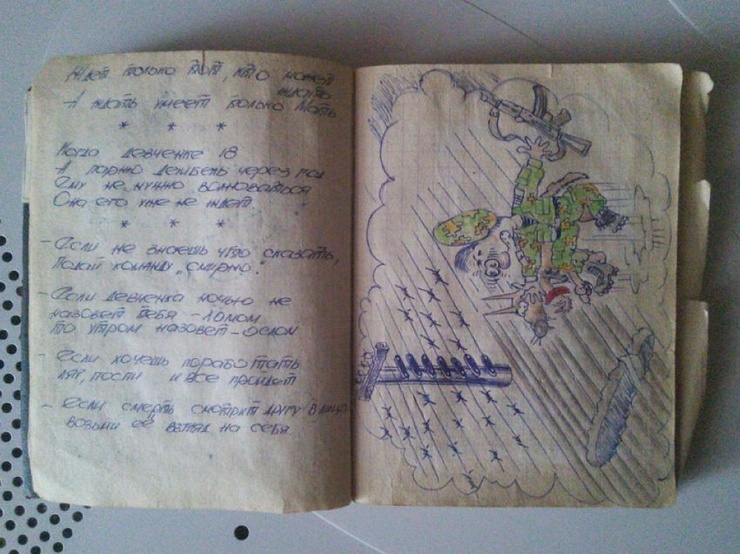 Ждет только тот, кто может
ждать
А ждать умеет только Мать
* * *
Когда девченке 18
А парню дембель через год
Ему не нужно волноваться
Она его уже не ждет
* * *
- Если не знаешь что сказать,
подай команду „смирно"
- Если девченка ночью не
назовет тебя - Ромом
то утром назовет - ослом
- если хочешь поработать
ляг, поспи и все пройдет
- если смерть смотрит другу в лицо
возьми её взгляд на себя